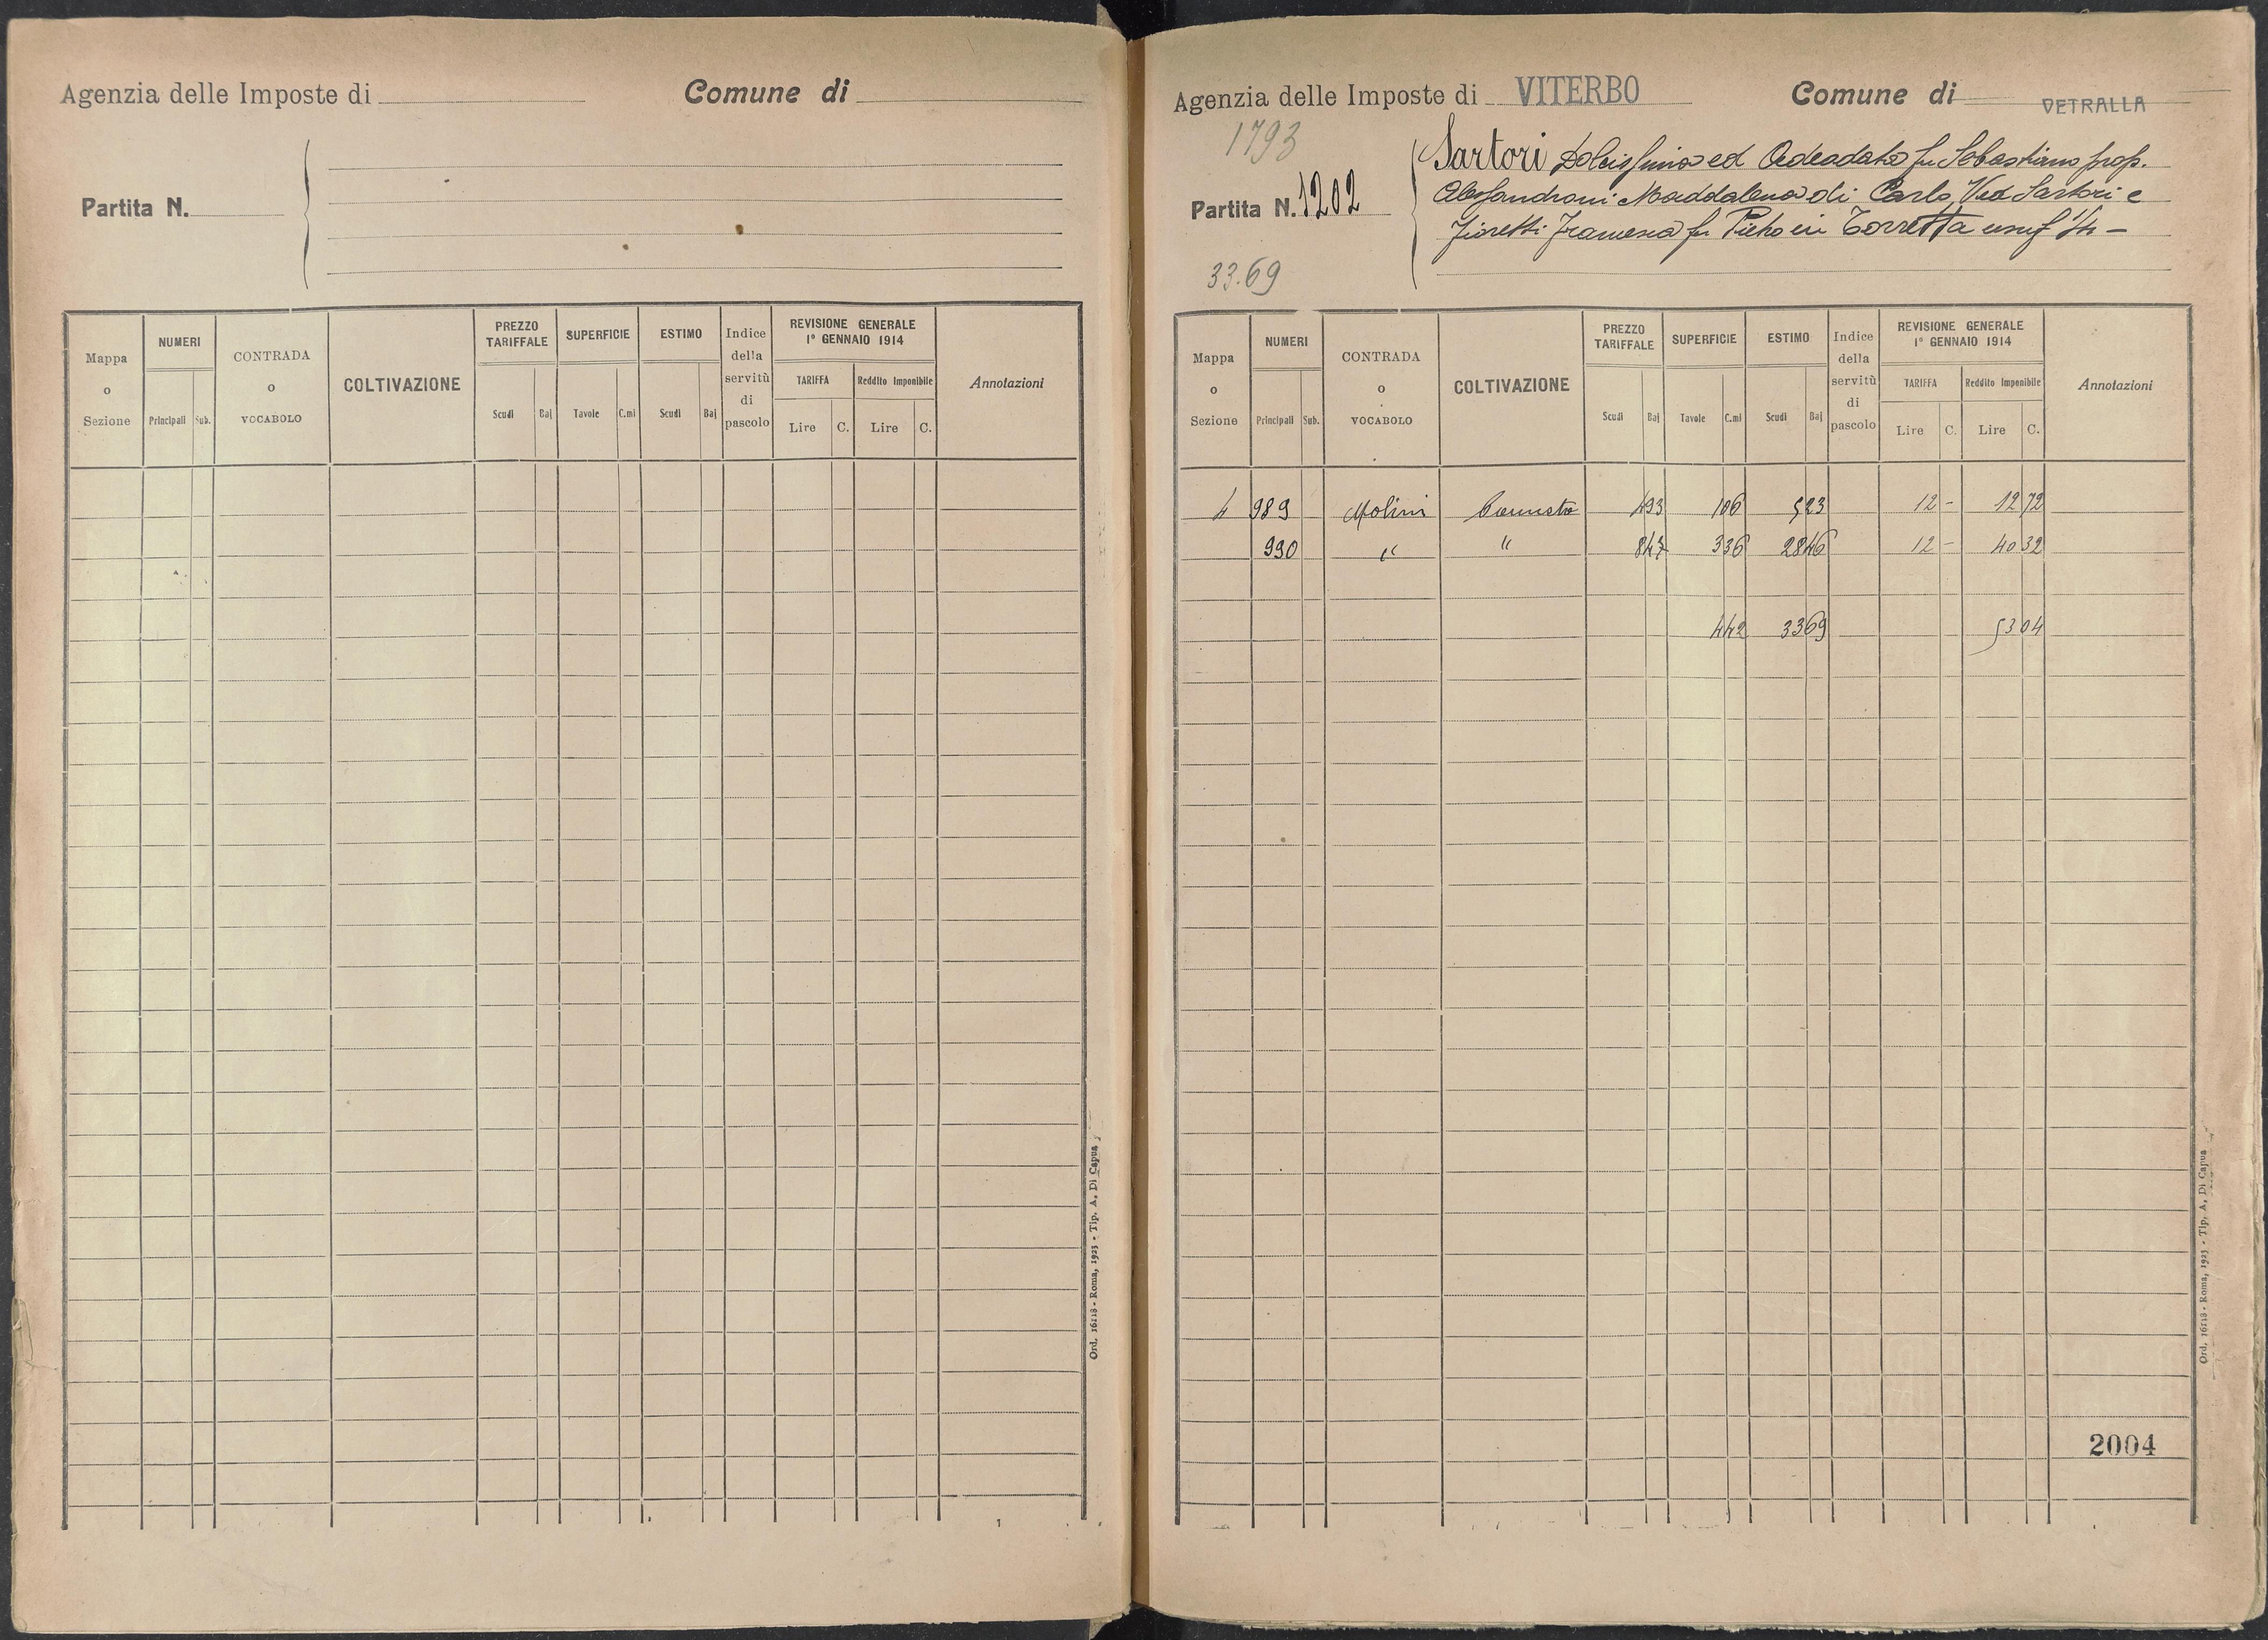 Agenzia delle Imposte di
Comune di
Partita N.
Mappa o Sezione
NUMERI
Principali
Sub.
CONTRADA o VOCABOLO
COLTIVAZIONE
PREZZO TARIFFALE
Scudi
Baj
SUPERFICIE
Tavole
C.mi
ESTIMO
Scudi
Baj
Indice della servitù di pascolo
REVISIONE GENERALE
1° GENNAIO 1914
TARIFFA
Reddito Imponibile
Lire
C.
Lire
C.
Annotazioni
Ord. 16118 - Roma, 1923 - Tip. A. Di Capua
Agenzia delle Imposte di VITERBO
Comune di VETRALLA
1793
Partita N. 1202
33.69
Sartori ed Adeodato fu Sebastiano prop.
Alessandroni Maddalena di Carlo Ved Sartori e
Fioretti Francesca fu Pietro in Torretta usuf
Mappa o Sezione
NUMERI
Principali
Sub.
CONTRADA o VOCABOLO
COLTIVAZIONE
PREZZO TARIFFALE
Scudi
Baj
SUPERFICIE
Tavole
C.mi
ESTIMO
Scudi
Baj
Indice della servitù di pascolo
REVISIONE GENERALE
1° GENNAIO 1914
TARIFFA
Reddito Imponibile
Lire
C.
Lire
C.
Annotazioni
4 989 Molini 493 106 523 12 - 12 72
990 " " 847 336 2846 12 - 40 32
442 3369 53 04
2004
Ord. 16118 - Roma, 1923 - Tip. A. Di Capua